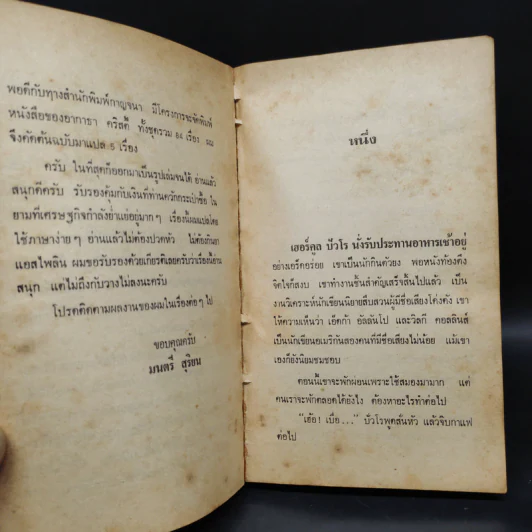 พอดีกับทางสำนักพิมพ์กาญจนา มีโครงการจะจัดพิมพ์
หนังสือของอากาธา คริสตี้ ทั้งชุดรวม 84 เรื่อง ผม
จึงคัดต้นฉบับมาแปล 5 เรื่อง
ครับ ในที่สุดก็ออกมาเป็นรูปเล่มจนได้ อ่านแล้ว
สนุกดีครับ รับรองคุ้มกับเงินที่ท่านควักกระเป๋าซื้อ ใน
ยามที่เศรษฐกิจกำลังย่ำแย่อยู่มากๆ เรื่องนี้ผมแปลโดย
ใช้ภาษาง่ายๆ อ่านแล้วไม่ต้องปวดหัว ไม่ต้องกินยา
แอสไพลิน ผมขอรับรองด้วยเกียรติเลยครับว่าเรื่องนี้อ่าน
สนุก แต่ไม่ถึงกับวางไม่ลงนะครับ
โปรดติดตามผลงานของผมในเรื่องต่อๆ ไป
ขอบคุณครับ
มนตรี สุริยน
หนึ่ง
เฮอร์คูล ปัวโร นั่งรับประทานอาหารเช้าอยู่
อย่างเอร็ดอร่อย เขาเป็นนักกินตัวยง พอหนังท้องตึง
จิตใจก็สงบ เขาทำงานชิ้นสำคัญเสร็จสิ้นไปแล้ว เป็น
งานวิเคราะห์นักเขียนนิยายสืบสวนผู้มีชื่อเสียงโด่งดัง เขา
ให้ความเห็นว่า เอ็ดก้า อัลลันโป และวิลกี คอลลินส์
เป็นนักเขียนอเมริกันสองคนที่มีชื่อเสียงไม่น้อย แม้เขา
เองก็ยังนิยมชมชอบ
ตอนนี้เขาจะพักผ่อนเพราะใช้สมองมามาก แต่
คนเราจะพักตลอดได้ยังไง ต้องหาอะไรทำต่อไป
"เฮ้อ! เบื่อ..." ปัวโรพูดสั่นหัว แล้วจิบกาแฟ
ต่อไป